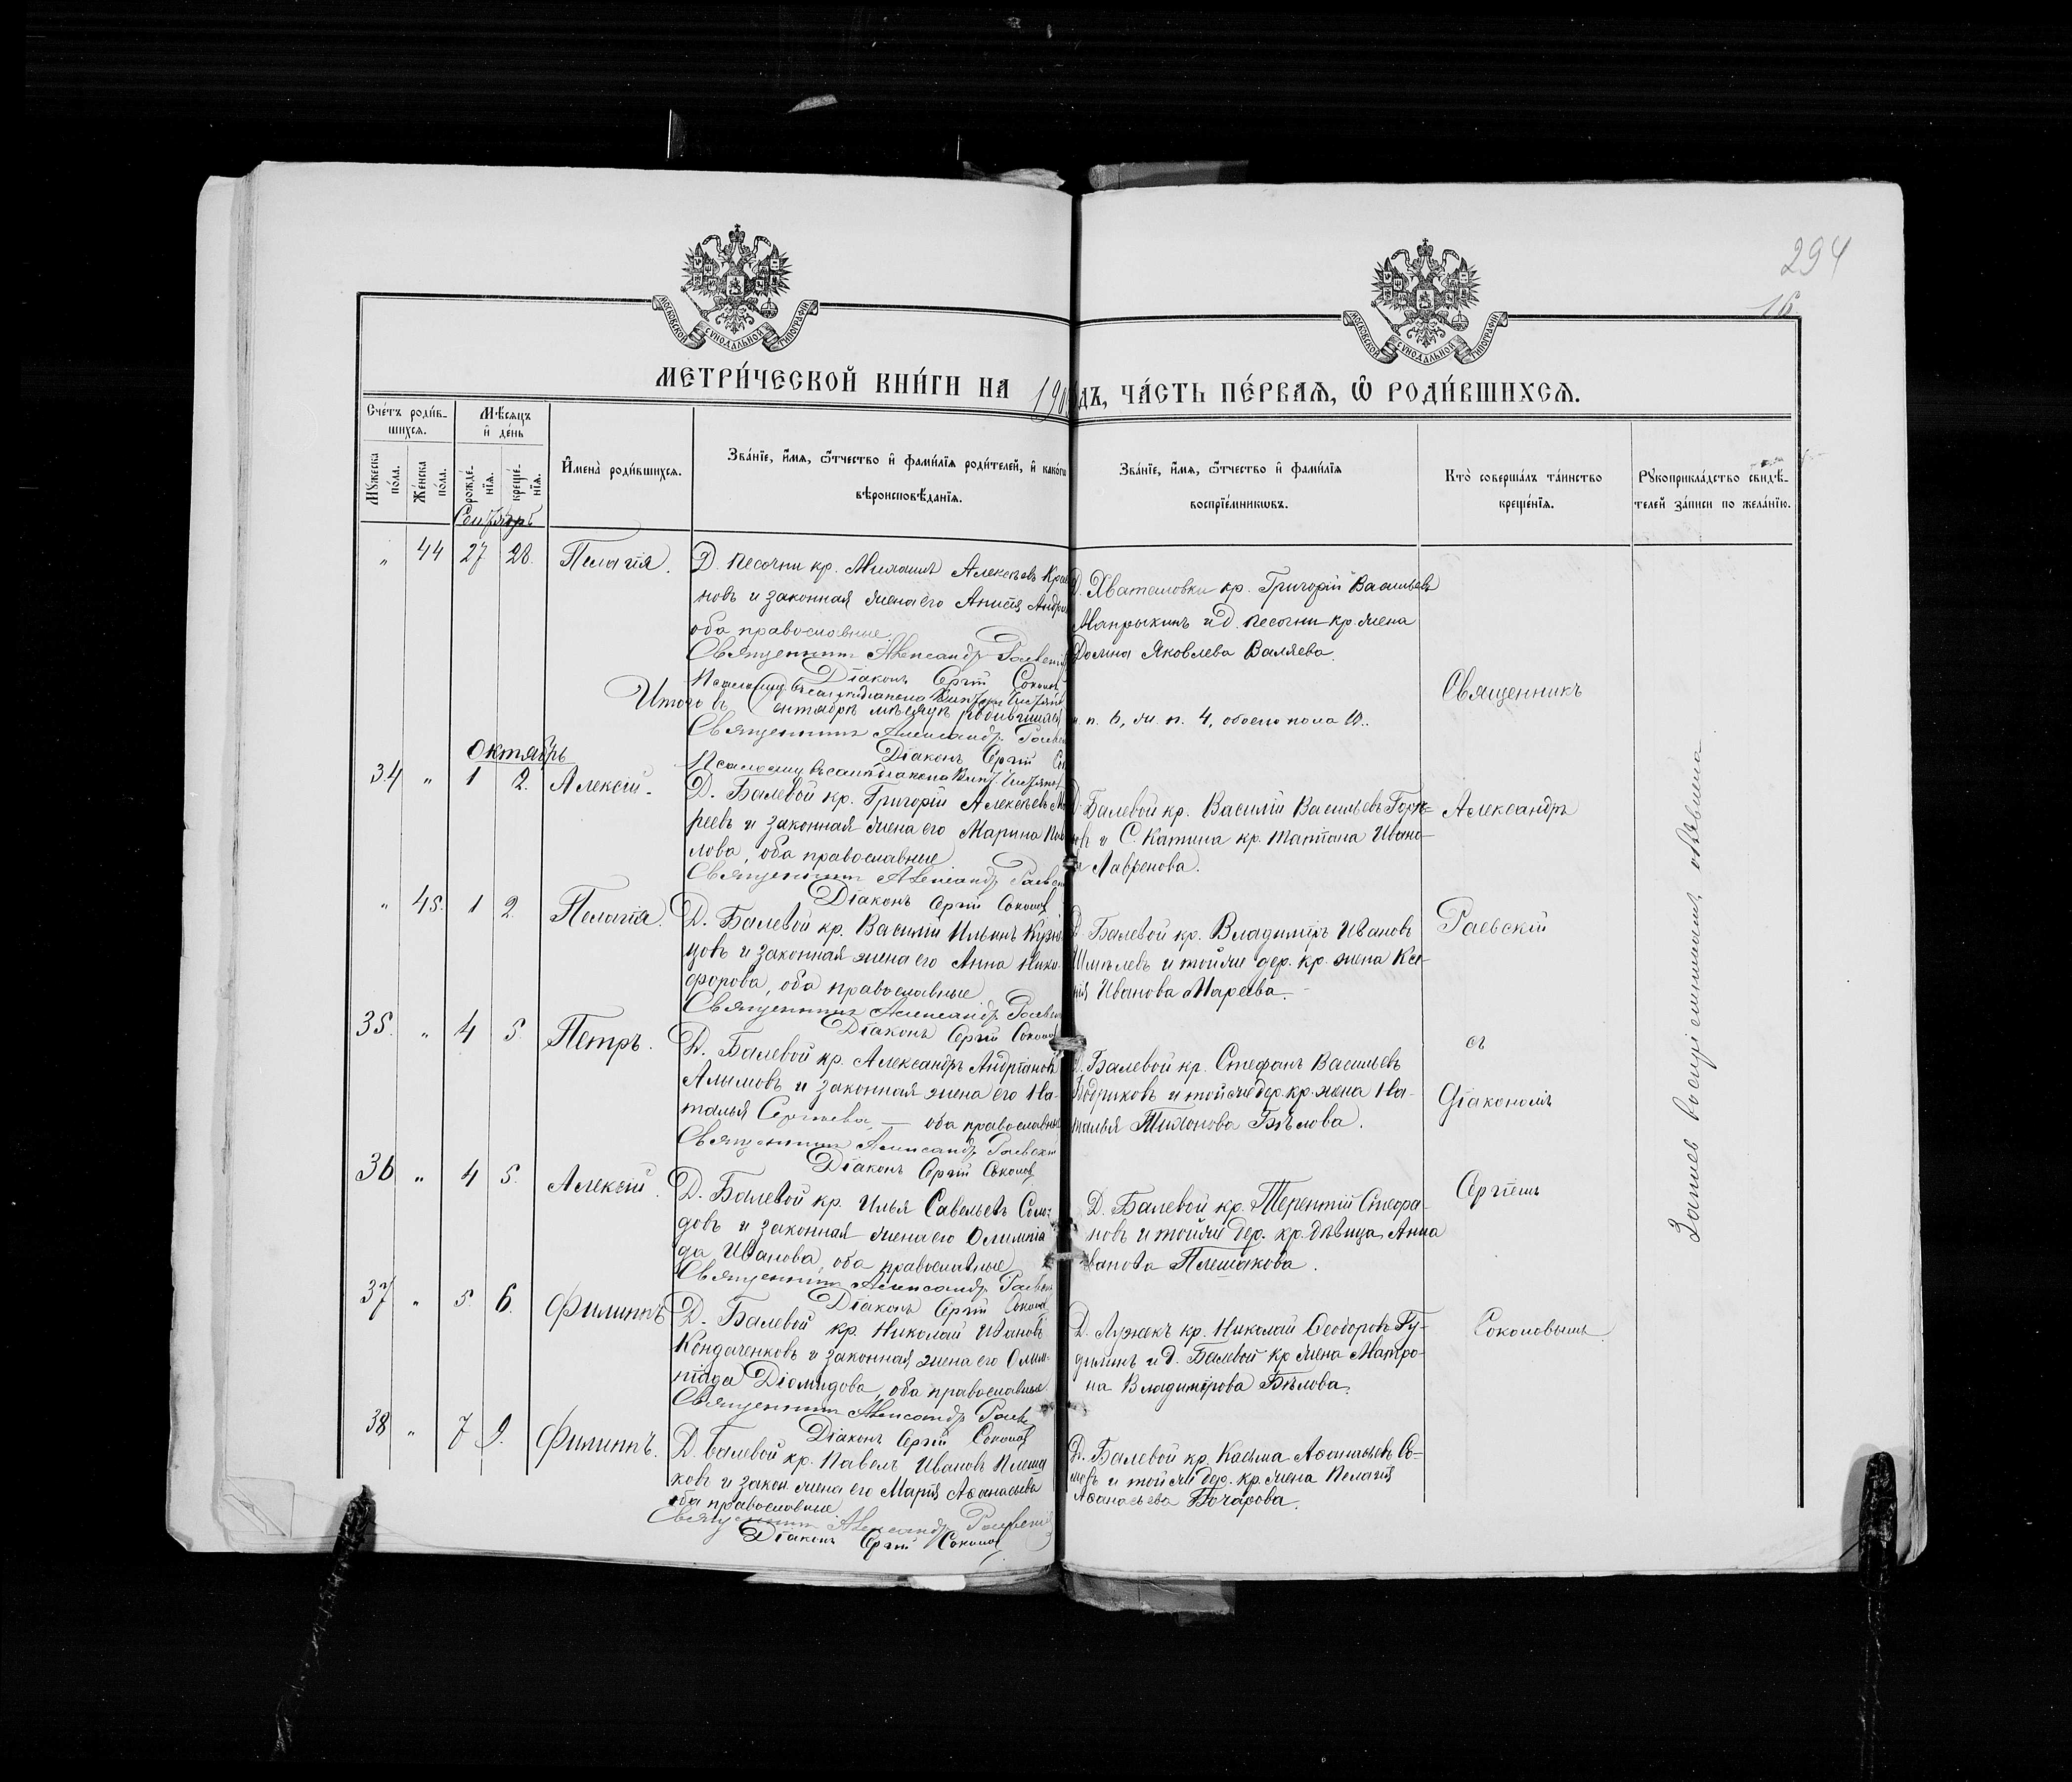 294
16
МОСКОВСКОЙ СУНОДАЛЬНОЙ ТИПОГРАФІИ
МОСКОВСКОЙ СУНОДАЛЬНОЙ ТИПОГРАФІИ
МЕТРИ́ЧЕСКОЙ КНИ́ГИ НА 190 ДЪ, ЧА́СТЬ ПЕ́РВАЯ, Ѽ РОДИ́ВШИХСЯ.
Сче́тъ роди́в-
шихся.
Мꙋ́жеска по́ла.
Же́нска по́ла.
Мѣ́сяцъ
и҆ де́нь
рожде́-
нїѧ.
креще́-
нїѧ.
И҆мена̀ роди́вшихся.
Зва́нїе, и҆́мя, ѻ҆́тчество и҆ фами́лїя роди́телей, и҆ како́гѡ
вѣроисповѣ́данїя.
Зва́нїе, и҆́мя, ѻ҆́тчество и҆ фами́лїя
воспрїе́мникѡвъ.
Кто̀ соверша́лъ та́инство
креще́нїя.
Рꙋкоприкла́дство свидѣ́-
телей за́писи по жела́нїю.
Сентябрь
" 44 27 28. Пелагія.
Д. Песочни кр. Михаилъ Алексѣевъ
новъ и законная жена его Анисія
оба православные.
Священникъ Александр Раевскій
Діаконъ Сергій Соколов
Д. Хватановки кр. Григорій Васильевъ
и д. Песочни кр. жена
Домна Яковлева Валяева.
Итого в Сентябрѣ мѣсяцѣ родившихся
м. п. 6, ж. п. 4, обоего пола 10.
Священникъ Александр Раевскій
Діаконъ Сергій
Октябрь
34 " 1 2. Алексій.
Д. Балевой кр. Григорій Алексѣевъ
реевъ и законная жена его Марина
лова, оба православные
Священникъ Александр Раевскій
Діаконъ Сергій Соколов
Д. Балевой кр. Василій Васильевъ
и С. Катина кр. Татіана Ивано-
ва Лавренова.
" 45. 1 2. Пелагія.
Д. Балевой кр. Василій Ильинъ Кузне
цовъ и законная жена его Анна Ники-
форова, оба православные
Священникъ Александр Раевскій
Діаконъ Сергій Соколов
Д. Балевой кр. Владиміръ Ивановъ
Шмѣлевъ и той же дер. кр. жена Ксе-
нія Иванова Мареева.
35. " 4 5. Петръ.
Д. Балевой кр. Александръ Андріановъ
Алымовъ и законная жена его На-
талья Сергѣева, — оба православные
Священникъ Александр Раевскій
Діаконъ Сергій Соколов
Д. Балевой кр. Стефанъ Васильевъ
Бодриковъ и той же дер. кр. жена На-
талья Тихонова Бѣлова.
36 " 4 5. Алексій.
Д. Балевой кр. Илья Савельевъ
довъ и законная жена его Олимпіа
да Иванова, оба православные
Священникъ Александр Раевскій
Діаконъ Сергій Соколов
Д. Балевой кр. Терентій
новъ и той же дер. кр. дѣвица Анна
Иванова Плешакова.
37 " 5 6. Филиппъ
Д. Балевой кр. Николай Ивановъ
Кондаченковъ и законная жена его Олим-
піада Діомидова, оба православные
Священникъ Александр Раевскій
Діаконъ Сергій Соколов
Д. Лужекъ кр. Николай Ѳеодоровъ Гу-
динъ и д. Балевой кр жена Матро-
на Владимірова Бѣлова.
38 " 7 9. Филиппъ.
Д. Балевой кр. Павелъ Ивановъ Плеша
ковъ и закон. жена его Марія Аѳанасьева
оба православные
Священникъ Александр Раевскій
Діаконъ Сергій Соколов
Д. Балевой кр. Касьма Аѳанасьевъ Со-
и той же дер. кр. жена Пелагія
Аѳанасьева Бочарова.
Священникъ
Александръ
Раевскій
съ
Діакономъ
Сергіемъ
Соколовымъ